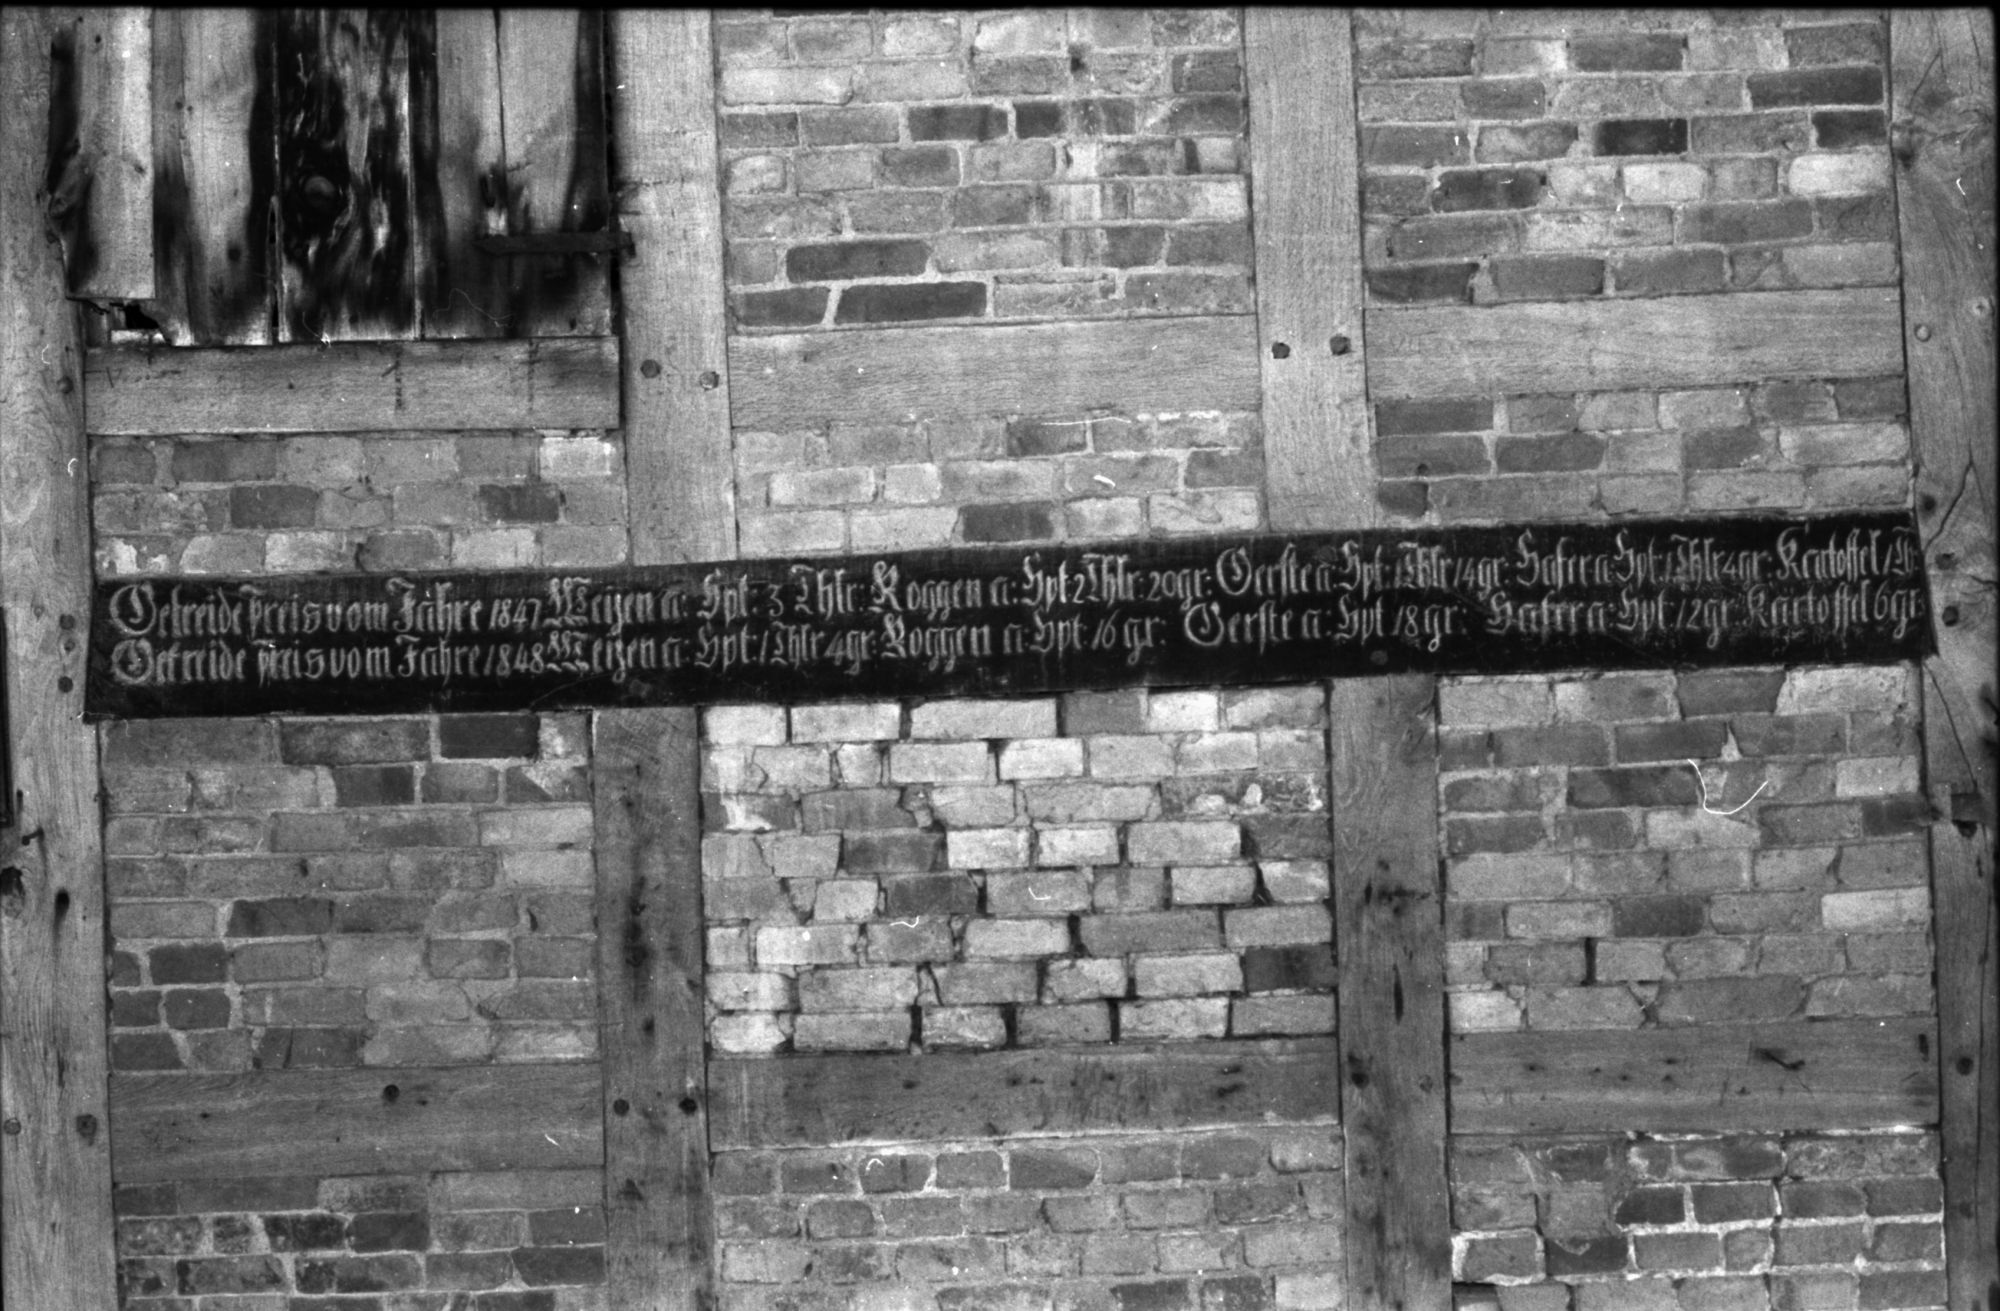 Getreide Preis vom Jahre 1847 Weizen a: Hpt: 3 Thlr: Roggen a: Hpt 2 Thlr: 20 gr: Gerste a: Hpt: 1 Thlr 14 gr: Hafer a: Hpt: 1 Thlr 4 gr: Kartoffel 1 Th:
Getreide Preis vom Jahre 1848 Weizen a: Hpt: 1 Thlr 4 gr: Roggen a: Hpt: 16 gr: Gerste a: Hpt 18 gr: Hafer a: Hpt: 12 gr: Kartoffel 6 gr: